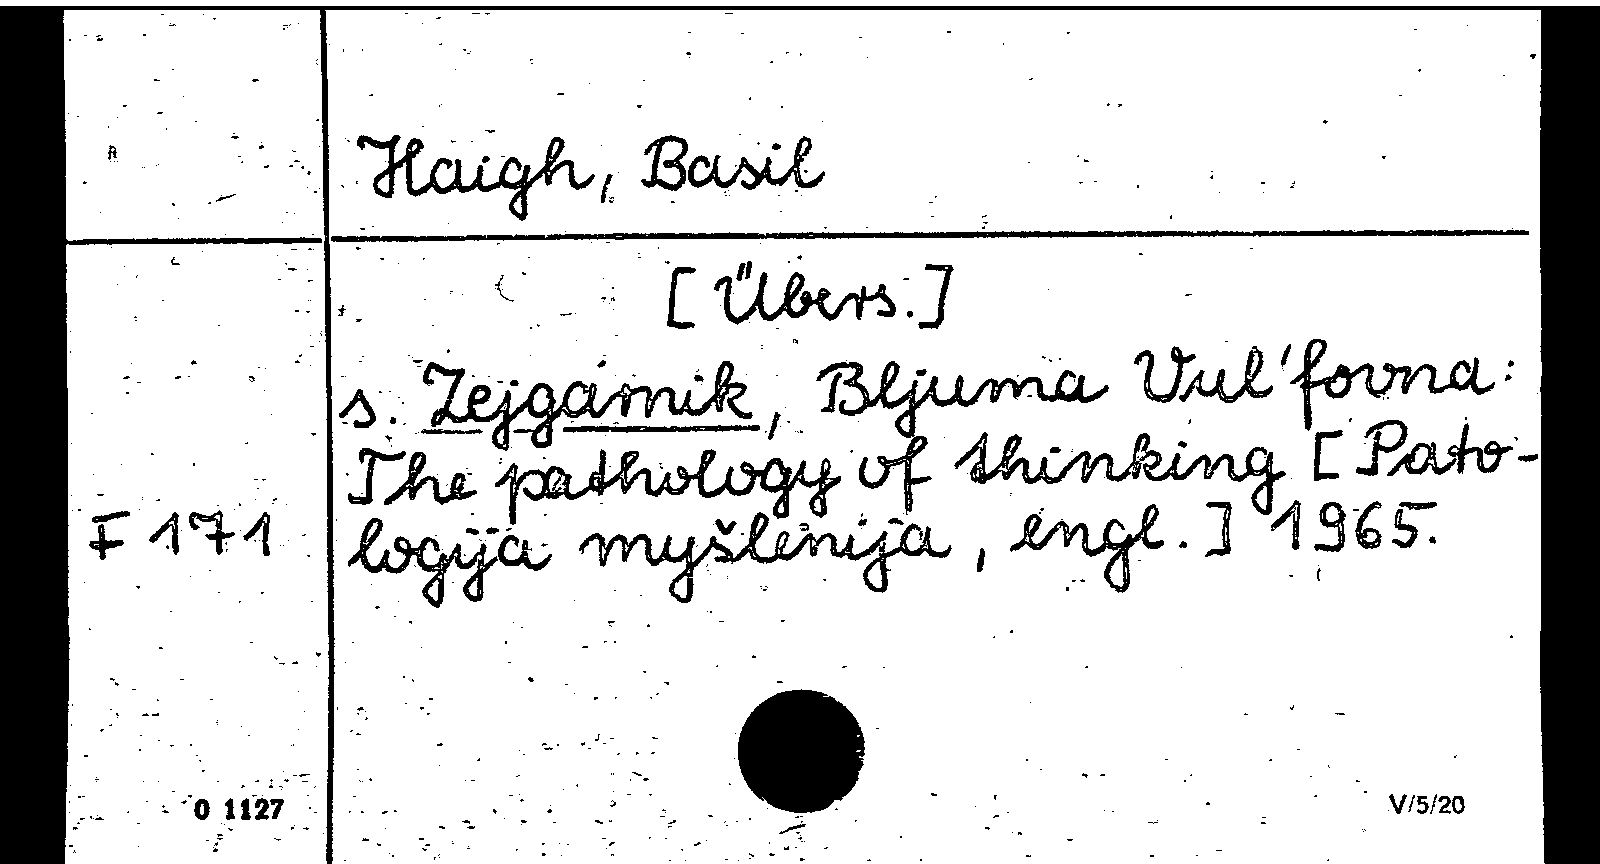 Haigh, Basil
[Übers.]
s. Zejgarnik, Bljuma Vul'fovna:
The pathology of thinking [Pato-
F 171 logija myšlenija, engl.] 1965.
0 1127
V/5/20